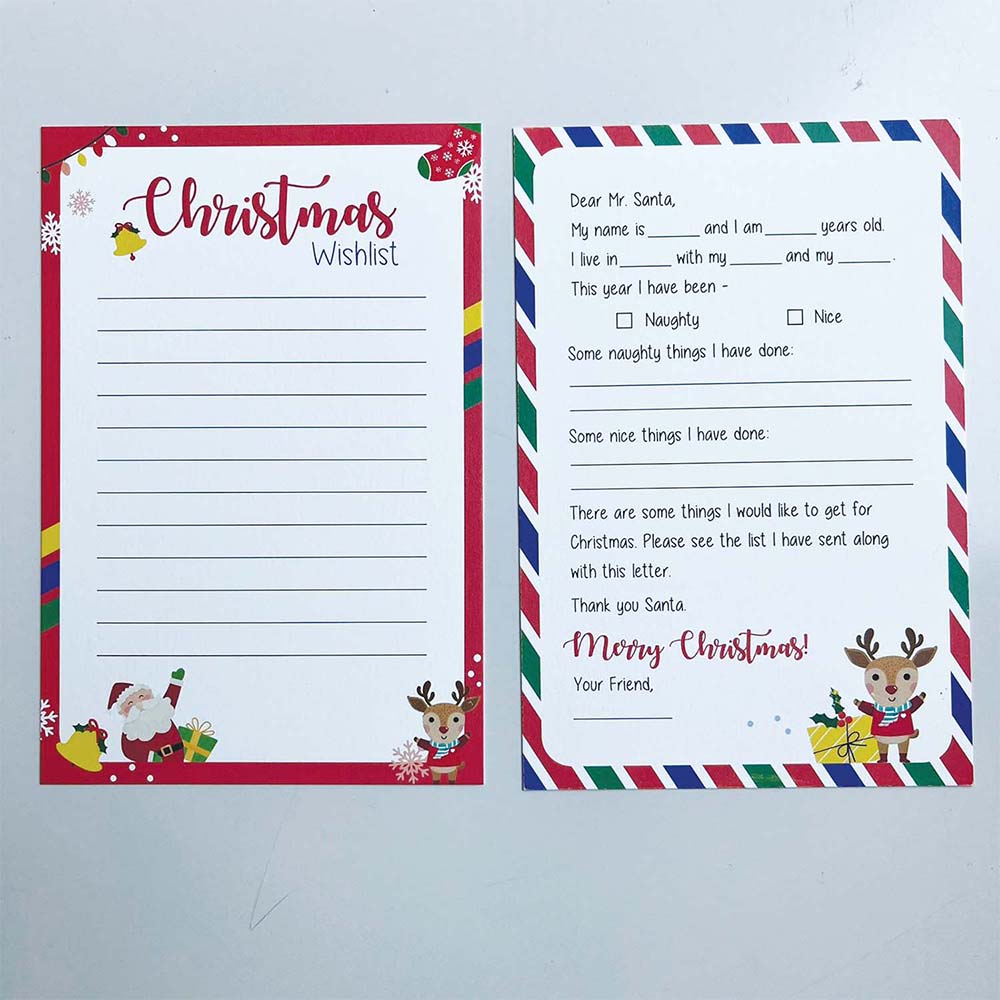 Christmas
Wishlist
Dear Mr. Santa,
My name is ______ and I am ______ years old.
I live in ______ with my ______ and my ______.
This year I have been -
☐ Naughty ☐ Nice
Some naughty things I have done:
Some nice things I have done:
There are some things I would like to get for
Christmas. Please see the list I have sent along
with this letter.
Thank you Santa.
Merry Christmas!
Your Friend,